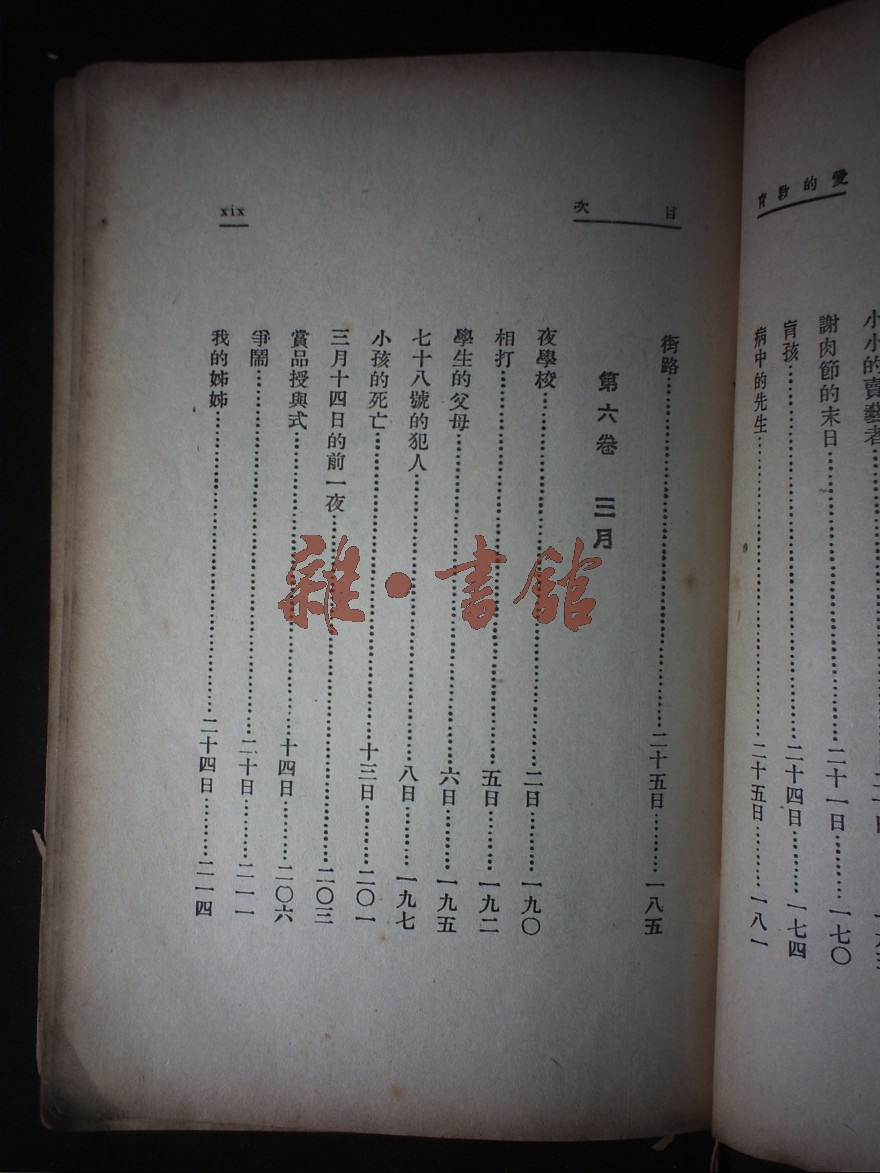 愛的教育
小小的賣藝者
謝肉節的末日………二十一日………一七〇
盲孩………二十四日………一七四
病中的先生………二十五日………一八一
目次
xix
街路………二十五日………一八五
第六卷 三月
夜學校………二日………一九〇
相打………五日………一九二
學生的父母………六日………一九五
七十八號的犯人………八日………一九七
小孩的死亡………十三日………二〇一
三月十四日的前一夜………二〇三
賞品授與式………十四日………二〇六
爭鬧………二十日………二一一
我的姊姊………二十四日………二一四
雜·書館